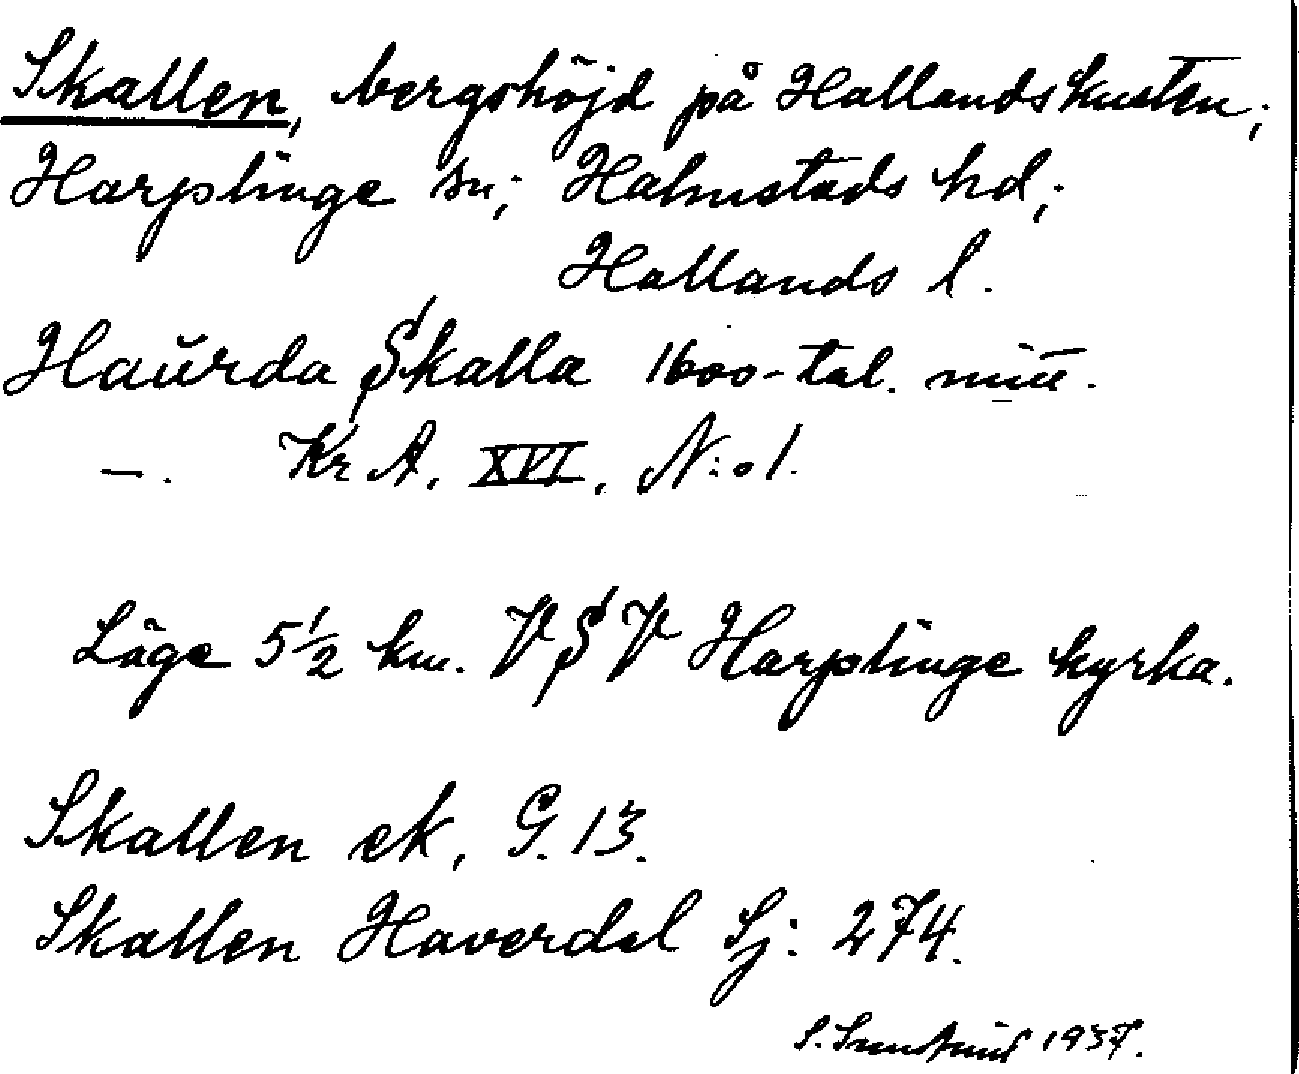 Skallen, bergshöjd på Hallandskusten;
Harplinge sn; Halmstads hd;
Hallands l.
Haŭrda Skalla 1600-tal. mitt.
—. KrA. XVI. N:o 1.
Läge 5½ km. VSV Harplinge kyrka.
Skallen ek, G. 13.
Skallen Haverdal Sj: 274.
1937.